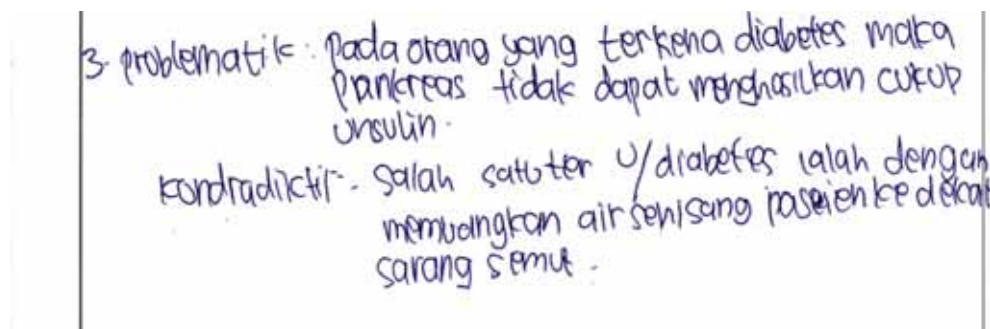 3. problematik : Pada orang yang terkena diabetes maka
pankreas tidak dapat menghasilkan cukup
unsulin.
kondradiktif - Salah satu ter u/diabetes ialah dengan
memuangkan air seni sang pasien ke dekat
sarang semut.